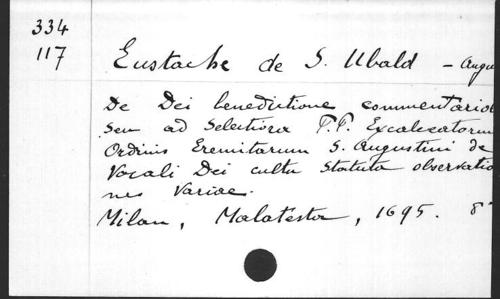 334
117
Eustache de S. Ubald - Augu
De Dei benedictione commentariol
seu ad selectiora P.P. Excalceatorum
Ordinis Eremitarum S. Augustini de
Vocali Dei cultu statuta observatio
nes variae.
Milan, Malatesta, 1695. 8°